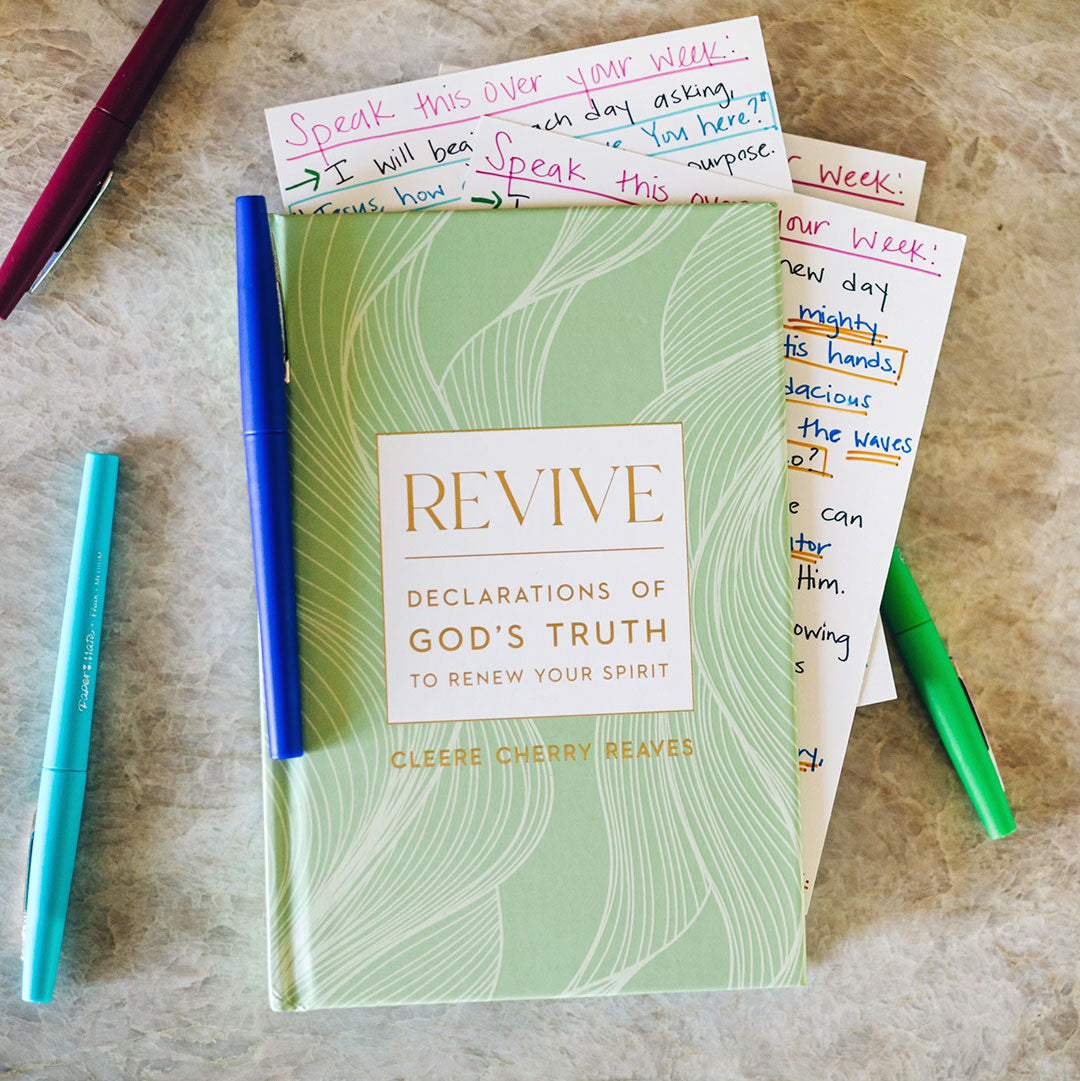 Speak this over your week:
→ I will each day asking,
"Jesus, how You here?"
purpose.
Speak this your week:
→ I
week:
new day
mighty
hands.
the waves
can
Him.
REVIVE
DECLARATIONS OF
GOD'S TRUTH
TO RENEW YOUR SPIRIT
CLEERE CHERRY REAVES
Paper Mate